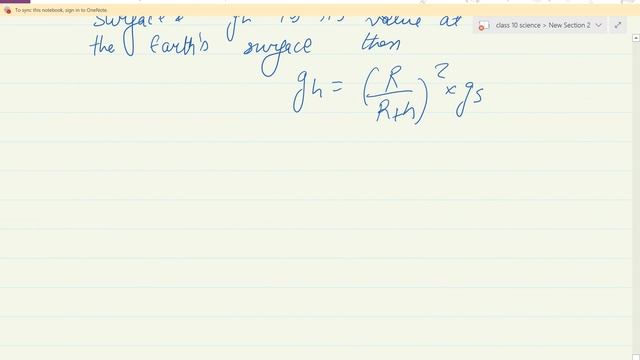 To sync this notebook, sign in to OneNote.
class 10 science > New Section 2
surface & gh is its value at
the Earth's surface then
gh = (R/R+h)² × gs